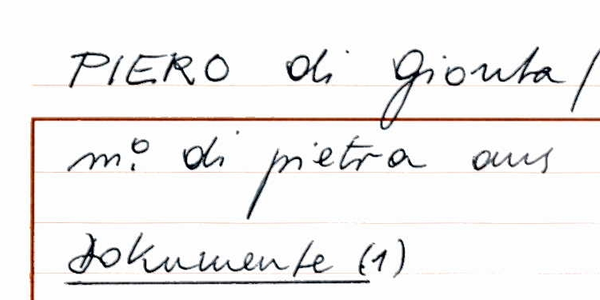 PIERO di Gionta/
mº. di pietra aus
Dokumente (1)